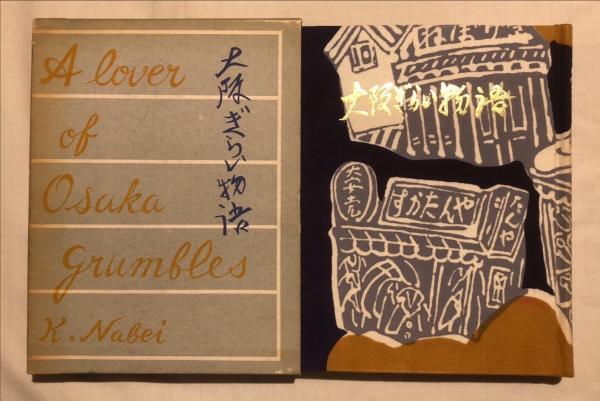 A lover
of
Osaka
Grumbles
K. Nabei
大阪ぎらい物語
大阪ぎらい物語
大安売
すかたんや